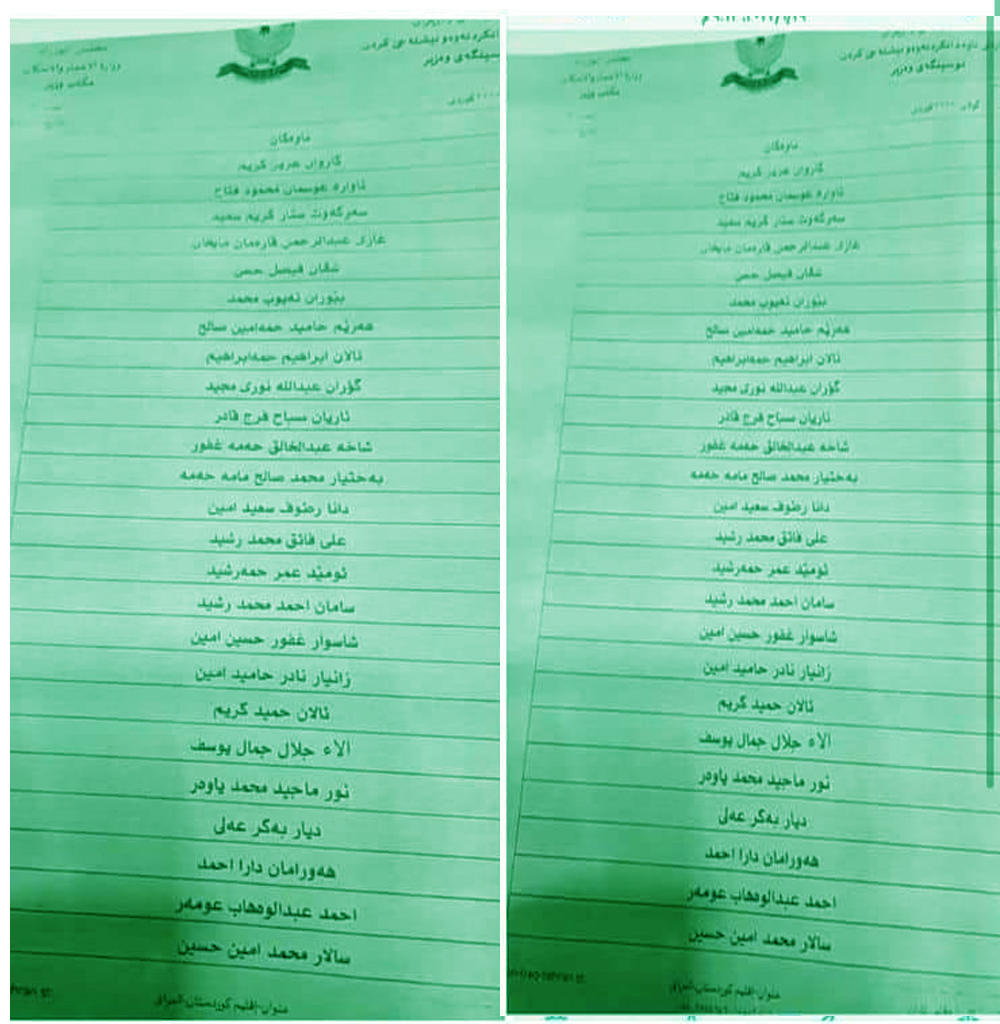 وزارة الاعمار والاسكان
مكتب وزير
ناوەکان
کاروان عزیز کریم
ئاوارە عوسمان محمود فتاح
سەرکەوت ستار کریم سعید
غازی عبدالرحمن قارەمان
شڤان فیصل حسن
بێوران ئەیوب محمد
هەرێم حامید حمەامین سالح
ئالان ابراهیم حمەابراهیم
گۆران عبدالله نوری مجید
ئاریان سباح فرج قادر
شاخە عبدالخالق حەمە غفور
بەختیار محمد صالح مامە حەمە
دانا رەئوف سعید امین
علی فائق محمد رشید
ئومێد عمر حمەرشید
سامان احمد محمد رشید
شاسوار غفور حسین امین
زانیار نادر حامید امین
ئالان حمید کریم
الاء جلال جمال یوسف
نور ماجید محمد یاودر
دیار بەکر عەلی
هەورامان دارا احمد
احمد عبدالوەهاب عومەر
سالار محمد امین حسین
عنوان-اقلیم کوردستان-العراق
نوسینگەی وەزیر
مكتب وزير
ناوەکان
کاروان عزیز کریم
ئاوارە عوسمان محمود فتاح
سەرکەوت ستار کریم سعید
غازی عبدالرحمن قارەمان
شڤان فیصل حسن
بێوران ئەیوب محمد
هەرێم حامید حمەامین سالح
ئالان ابراهیم حمەابراهیم
گۆران عبدالله نوری مجید
ئاریان سباح فرج قادر
شاخە عبدالخالق حەمە غفور
بەختیار محمد صالح مامە حەمە
دانا رەئوف سعید امین
علی فائق محمد رشید
ئومێد عمر حمەرشید
سامان احمد محمد رشید
شاسوار غفور حسین امین
زانیار نادر حامید امین
ئالان حمید کریم
الاء جلال جمال یوسف
نور ماجید محمد یاودر
دیار بەکر عەلی
هەورامان دارا احمد
احمد عبدالوەهاب عومەر
سالار محمد امین حسین
عنوان-اقلیم کوردستان-العراق